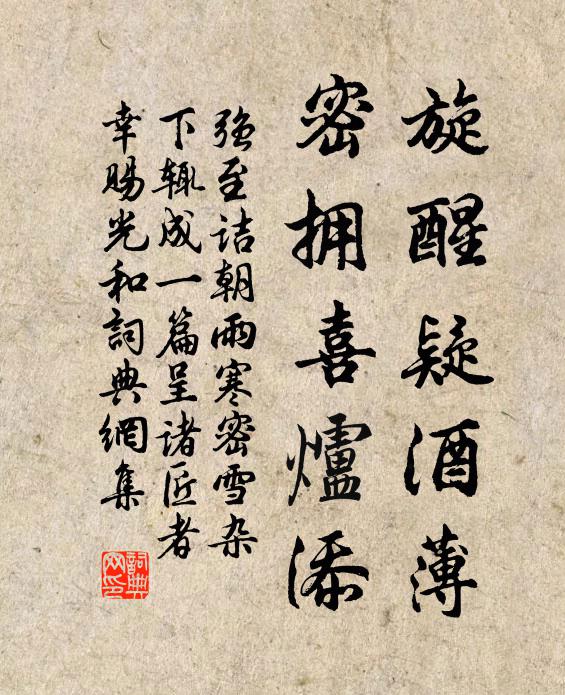 旋醒疑酒薄
密拥喜爐添
强至诘朝雨寒密雪杂
下辄成一篇呈诸匠者
幸賜光和詞典網集
詞典
网印